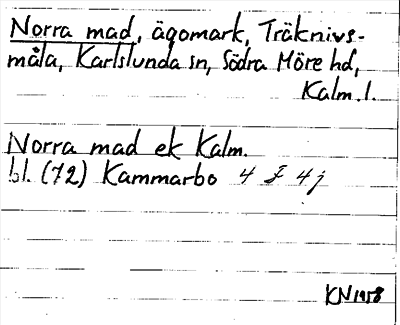 Norra mad, ägomark, Träknivs-
måla, Karlslunda sn, Södra Möre hd,
Kalm. l.
Norra mad ek Kalm.
bl. (72) Kammarbo 4 F 4j
KN 1958